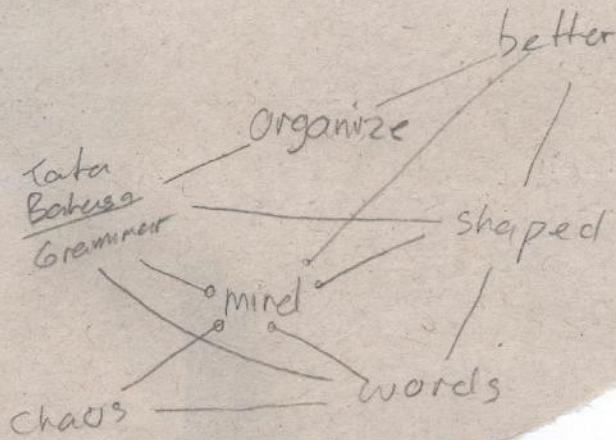 better
organize
Tata
Bahasa
Grammar
shaped
mind
words
chaos